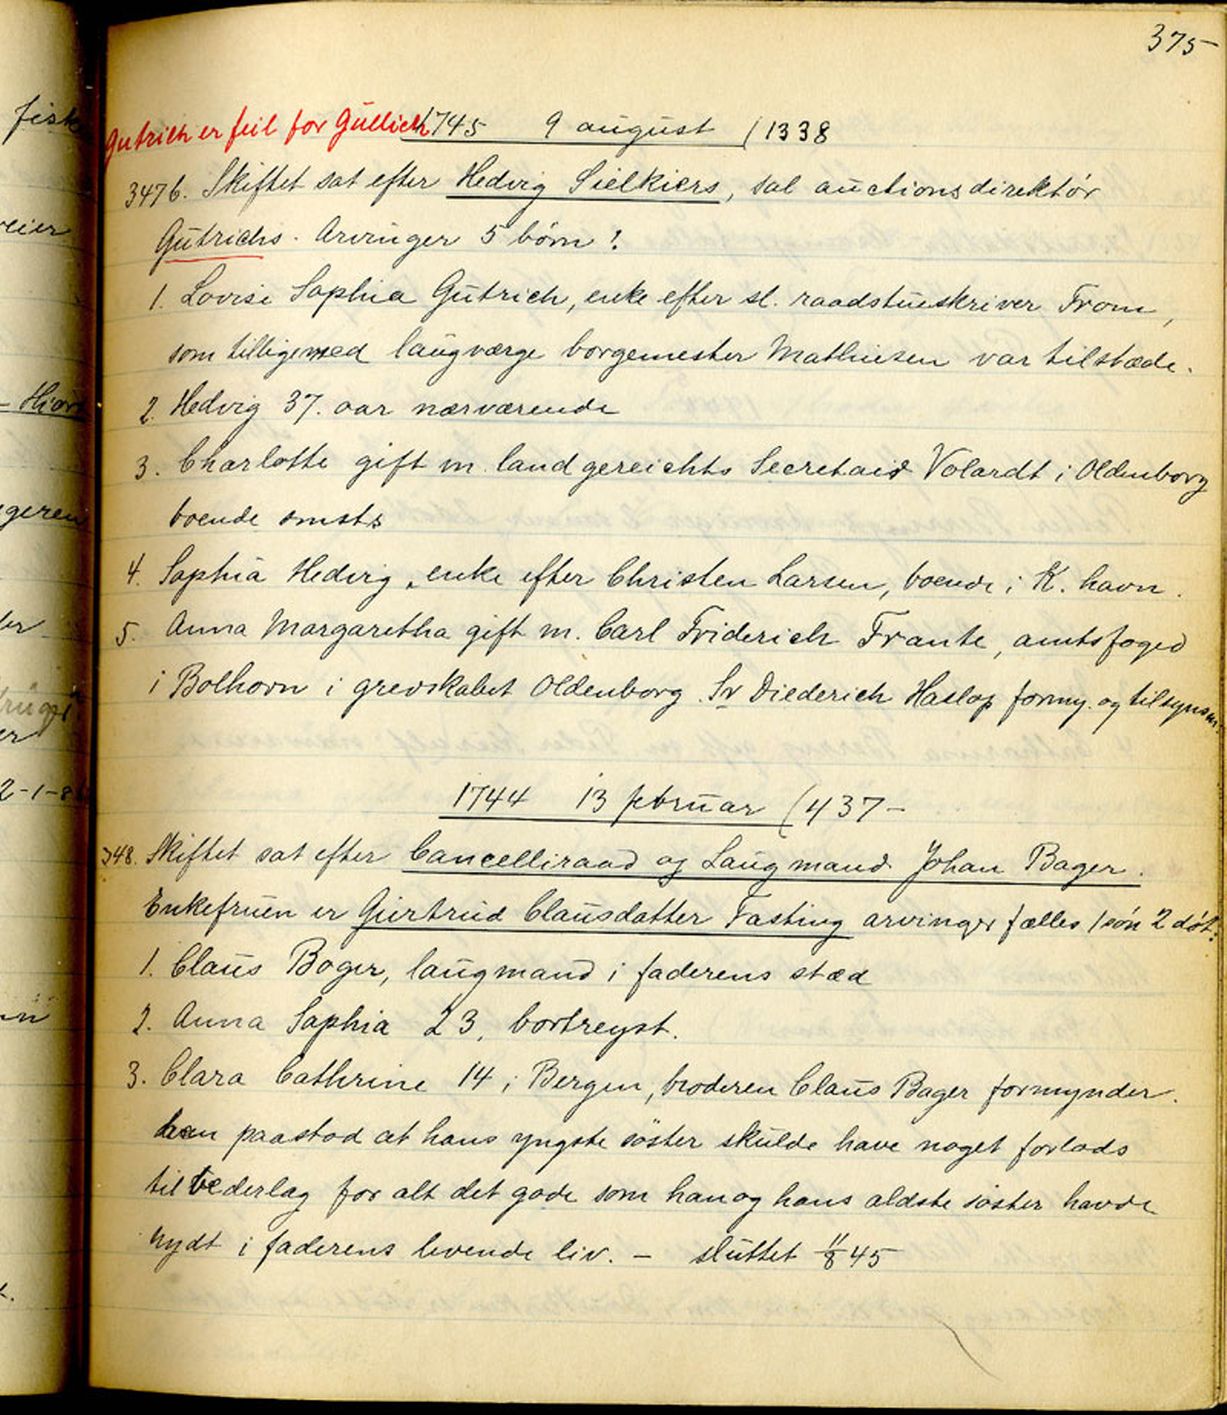 375
Gutrich er feil for Güllich
1745 9 august (1338
347b. Skiftet sat efter Hedvig Sielkiers, sal auctionsdirektör
Gütrichs. Arvinger 5 börn:
1. Lovise Sophia Gütrich, enke efter sl. raadstueskriver From,
som tilligemed laugværge borgemester Mathiesen var tilstæde.
2. Hedvig 37. aar nærværende
3. Charlotte gift m. landgereichts Secretair Volardt i Oldenborg
boende smsts
4. Sophia Hedvig, enke efter Christen Larsen, boende i K.havn.
5. Anna Margaretha gift m. Carl Friderich Frante, amtsfoged
i Bolhorn i grevskabet Oldenborg. Sr Diederich Haslop formy. og tilsynsm.
1744 13 februar (437-
348. Skiftet sat efter Cancelliraad og Laugmand Johan Bager.
Enkefruen er Giertrud Clausdatter Fasting arvinger fælles 1 sön 2 döt:
1. Claus Bager, laugmand i faderens stæd
2. Anna Sophia 23, bortreyst.
3. Clara Cathrine 14 i Bergen, broderen Claus Bager formynder.
han paastod at hans yngste söster skulde have noget forlods
til vederlag for alt det gode som han og hans aldste söster havde
nydt i faderens levende liv. - sluttet 11/8 45
fisk
geren
2-1-8